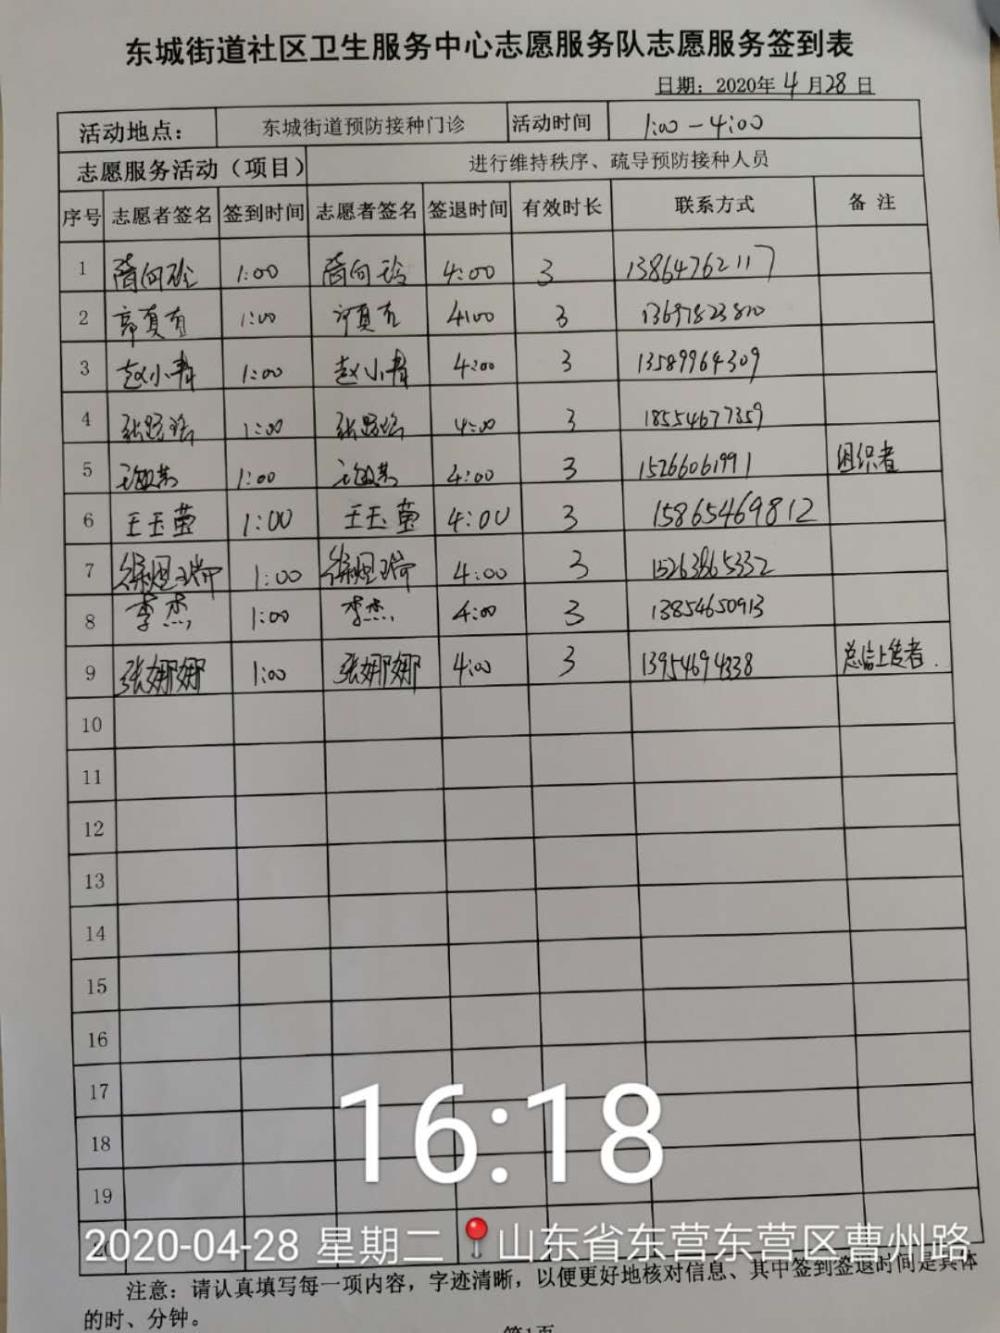 东城街道社区卫生服务中心志愿服务队志愿服务签到表
日期：2020年4月28日
活动地点： 东城街道预防接种门诊 活动时间 1:00-4:00
志愿服务活动（项目） 进行维持秩序、疏导预防接种人员
序号 志愿者签名 签到时间 志愿者签名 签退时间 有效时长 联系方式 备 注
1 1:00 4:00 3 13864762117
2 1:00 4:00 3 13697823810
3 赵小青 1:00 赵小青 4:00 3 13589964309
4 1:00 4:00 3 18554677359
5 1:00 4:00 3 15266061991 组织者
6 王玉莹 1:00 王玉莹 4:00 3 15865469812
7 徐煜瑞 1:00 徐煜瑞 4:00 3 15263865332
8 李杰 1:00 李杰 4:00 3 13854650913
9 张娜娜 1:00 张娜娜 4:00 3 13954694338 总信上传者.
10
11
12
13
14
15
16
17
18
19
16:18
2020-04-28 星期二 山东省东营东营区曹州路
注意：请认真填写每一项内容，字迹清晰，以便更好地核对信息、其中签到签退时间是具体
的时、分钟。
第1页